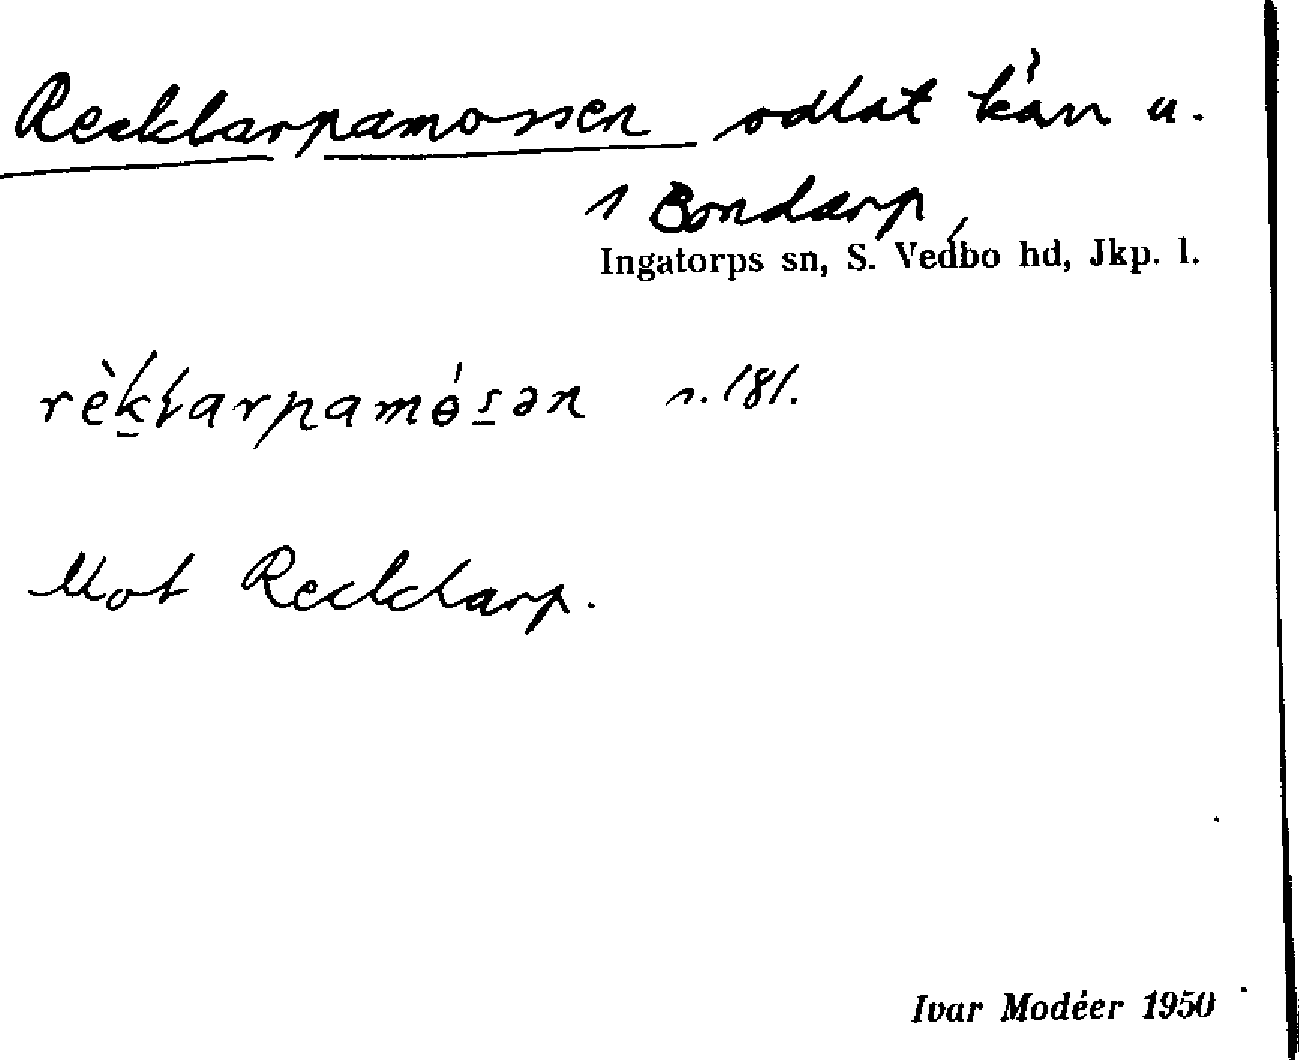 Recklarpamossen odlat kärr u.
1 Bondarp,
Ingatorps sn, S. Vedbo hd, Jkp. l.
rèḵłarpamósən s. 181.
Mot Recklarp.
Ivar Modéer 1950